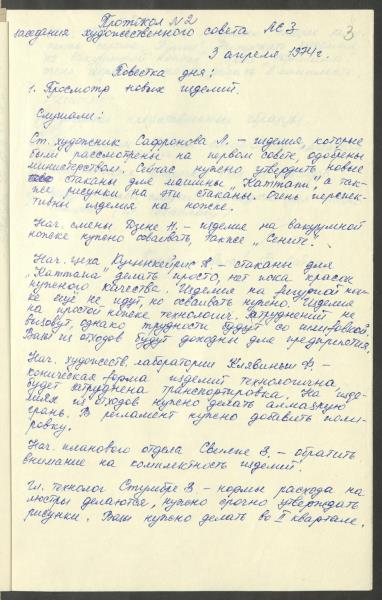 Протокол №2
заседания художественного совета ЛСЗ
3
3 апреля 1974 г.
Повестка дня:
1. Просмотр новых изделий.
Слушали:
Ст. художник Сафронова Л. – изделия, которые
были рассмотрены на первом совете, одобрены
министерством. Сейчас нужно утвердить новые
стаканы для машины „Каттани", а так-
же рисунки на эти стаканы. Очень перспек-
тивны изделия на ножке.
Нач. смены Дзене Н. – изделие на вакуумной
ножке нужно осваивать, также „Сените".
Нач. цеха – стаканы для
„Каттана" делать просто, нет пока красок
нужного качества. Изделие на фигурной нож-
ке ещё не идут, но осваивать нужно. Изделия
на простой ножке технолог. Затруднений не
вызовут, однако трудности будут со шлифовкой.
Вазы из отходов будут доходны для предприятия.
Нач. художеств. лаборатории Клявиньш Ф. –
коническая форма изделий технологична
будет затруднена транспортировка. На изде-
лиях из отходов нужно делать алмазную
грань. В регламент нужно добавить поли-
ровку.
Нач. планового отдела Свилпе З. – обратить
внимание на комплектность изделий.
Гл. технолог Стумбре З – нормы расхода на
люстры делаются, нужно срочно утверждать
рисунки. Вазы нужно делать во II квартале.